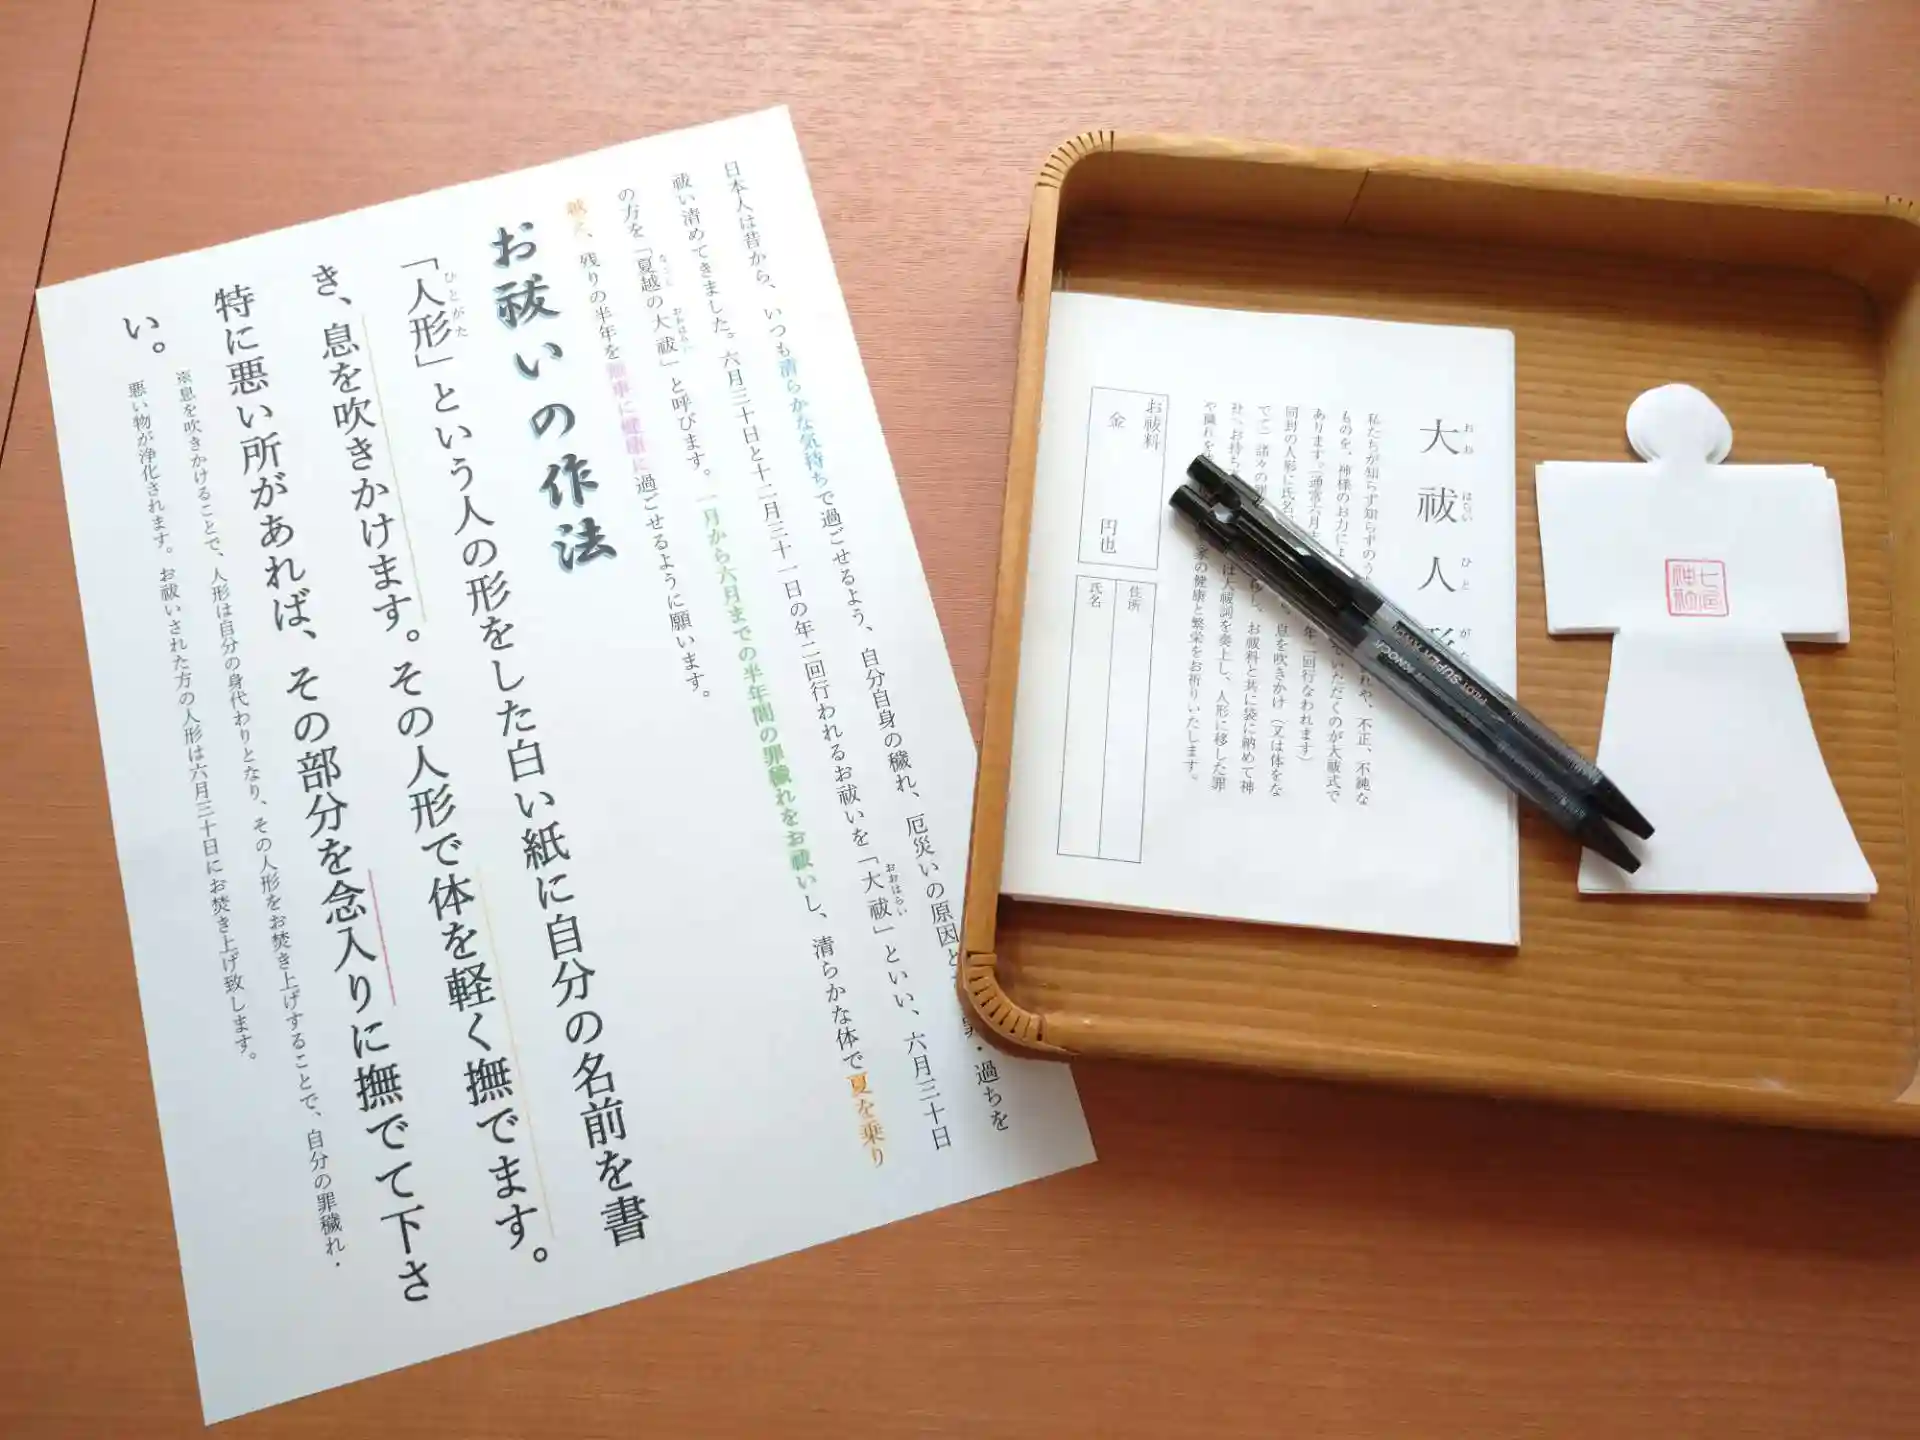 日本人は昔から、いつも清らかな気持ちで過ごせるよう、自分自身の穢れ、厄災いの原因と・過ちを
祓い清めてきました。六月三十日と十二月三十一日の年二回行われるお祓いを「大祓」といい、六月三十日
おおはらい
の方を「夏越の大祓」と呼びます。一月から六月までの半年間の罪穢れをお祓いし、清らかな体で夏を乗り
なごし おおはらい
越え、残りの半年を無事に健康に過ごせるように願います。
お祓いの作法
「人形」という人の形をした白い紙に自分の名前を書
ひとがた
き、息を吹きかけます。その人形で体を軽く撫でます。
特に悪い所があれば、その部分を念入りに撫でて下さ
い。
※息を吹きかけることで、人形は自分の身代わりとなり、その人形をお焚き上げすることで、自分の罪穢れ・
悪い物が浄化されます。お祓いされた方の人形は六月三十日にお焚き上げ致します。
大祓人
おお はらい ひと が
私たちが知らず知らずのう れや、不正、不純な
ものを、神様のお力によ ていただくのが大祓式で
あります。(通常六月 年二回行なわれます)
同封の人形に氏名 息を吹きかけ(又は体をな
でて)諸々の罪 し、お祓料と共に袋に納めて神
社へお持ち は大祓詞を奏上し、人形に移した罪
や穢れを 家の健康と繁栄をお祈りいたします。
お祓料
金 円也
住所
氏名
PILOT SUPER
KNOCK